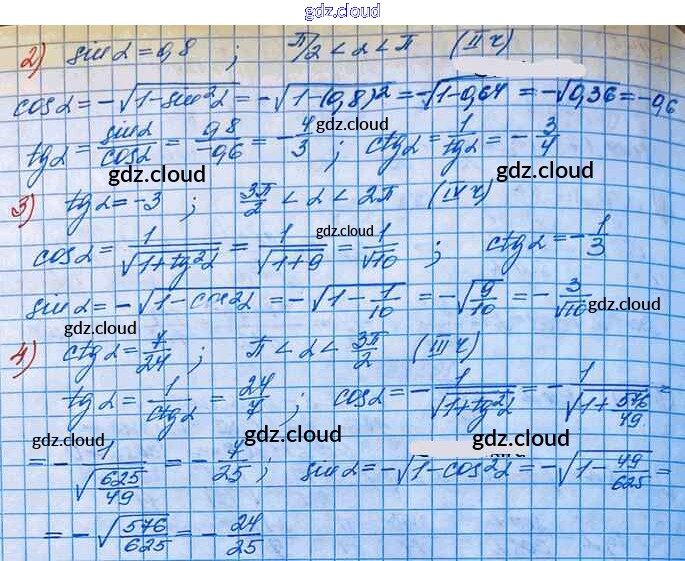 gdz.cloud
2) sin α = 0,8 ; π/2 < α < π (II ч)
cos α = -√(1-sin²α) = -√(1-(0,8)²) = -√(1-0,64) = -√0,36 = -0,6
gdz.cloud
tg α = sin α/cos α = 0,8/-0,6 = -4/3 ; ctg α = 1/tg α = -3/4
gdz.cloud gdz.cloud
3) tg α = -3 ; 3π/2 < α < 2π (IV ч)
gdz.cloud
cos α = 1/√(1+tg²α) = 1/√(1+9) = 1/√10 ; ctg α = -1/3
sin α = -√(1-cos²α) = -√(1-1/10) = -√(9/10) = -3/√10
gdz.cloud gdz.cloud
4) ctg α = 7/24 ; π < α < 3π/2 (III ч)
gdz.cloud
tg α = 1/ctg α = 24/7 ; cos α = -1/√(1+tg²α) = -1/√(1+576/49) =
gdz.cloud gdz.cloud gdz.cloud
= -1/√(625/49) = -7/25 ; sin α = -√(1-cos²α) = -√(1-49/625) =
= -√(576/625) = -24/25
gdz.cloud